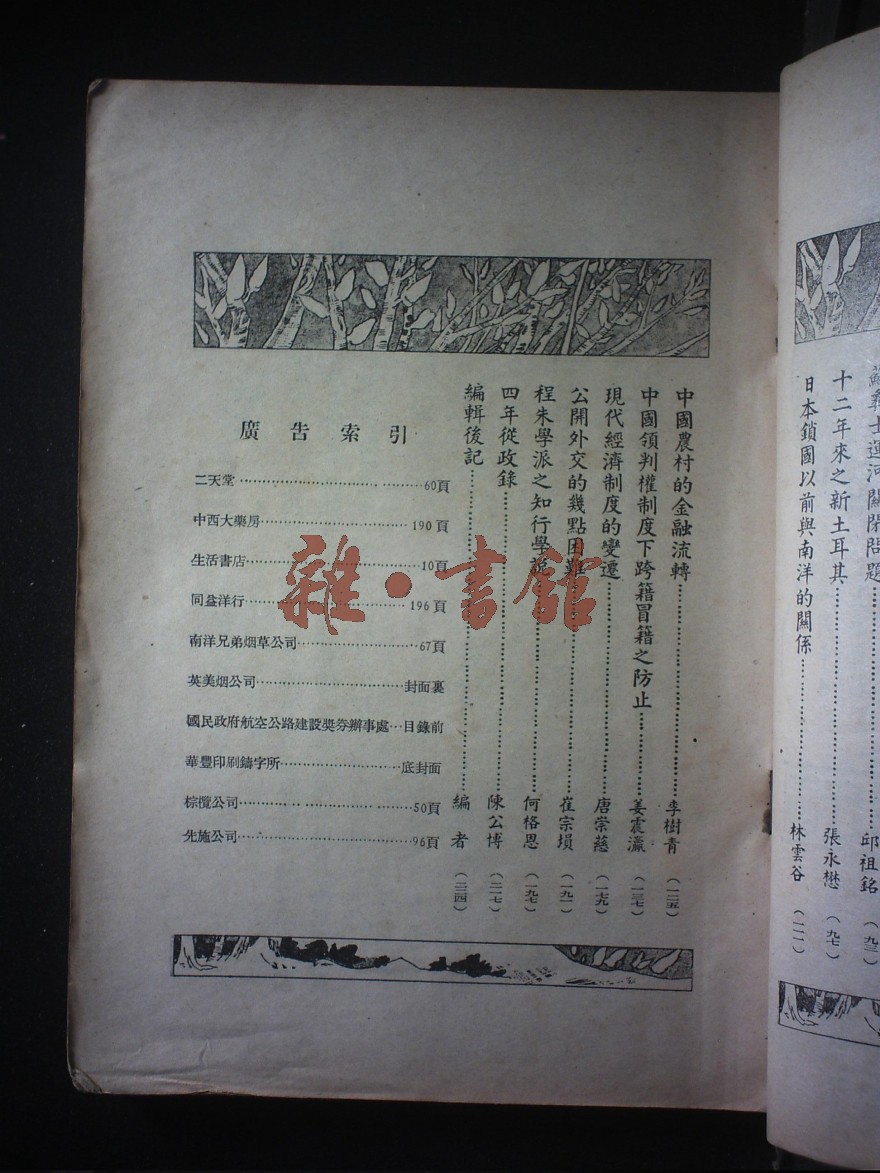 蘇彝士運河關閉問題……邱祖銘（九三）
十二年來之新土耳其……張永懋（九七）
日本鎖國以前與南洋的關係……林雲谷（一一一）
中國農村的金融流轉……李樹青（一二五）
中國領判權制度下跨籍冒籍之防止……姜震瀛（一三七）
現代經濟制度的變遷……唐崇慈（一七九）
公開外交的幾點困難……崔宗塤（一九一）
程朱學派之知行學說……何格恩（一九七）
四年從政錄……陳公博（二一七）
編輯後記……編者（二三四）
廣告索引
二天堂……60頁
中西大藥房……190頁
生活書店……10頁
同益洋行……196頁
南洋兄弟烟草公司……67頁
英美烟公司……封面裏
國民政府航空公路建設獎券辦事處…目錄前
華豐印刷鑄字所……底封面
棕欖公司……50頁
先施公司……96頁
雜·書館